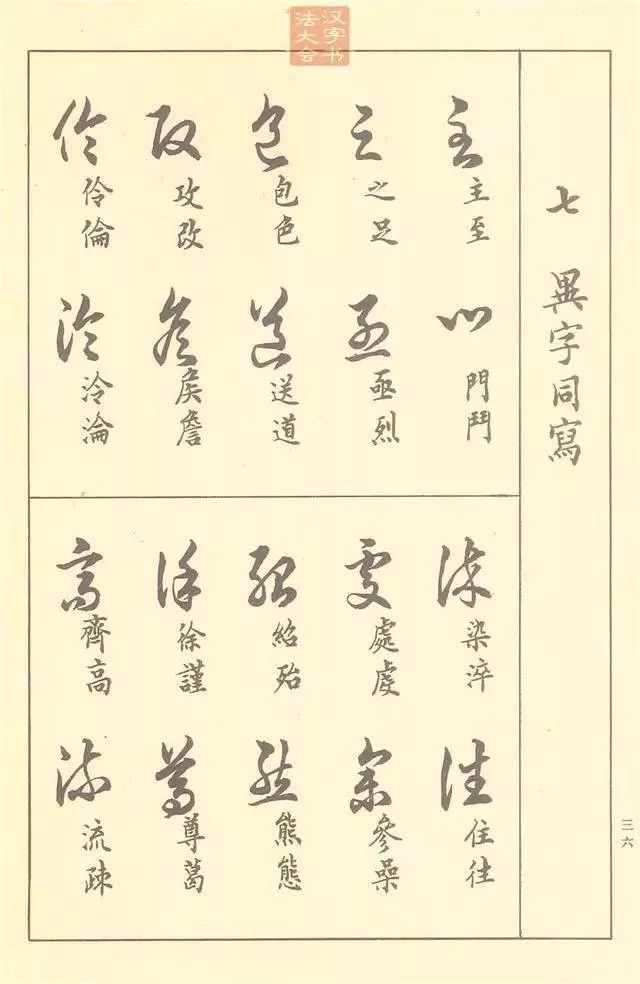 汉字书
法大会
七 異字同寫
主至
門鬥
之足
亟烈
包色
送道
攻改
矦詹
伶倫
泠淪
染淬
住往
處虔
參喿
紹殆
熊態
徐謹
尊葛
齊高
流疎
三六